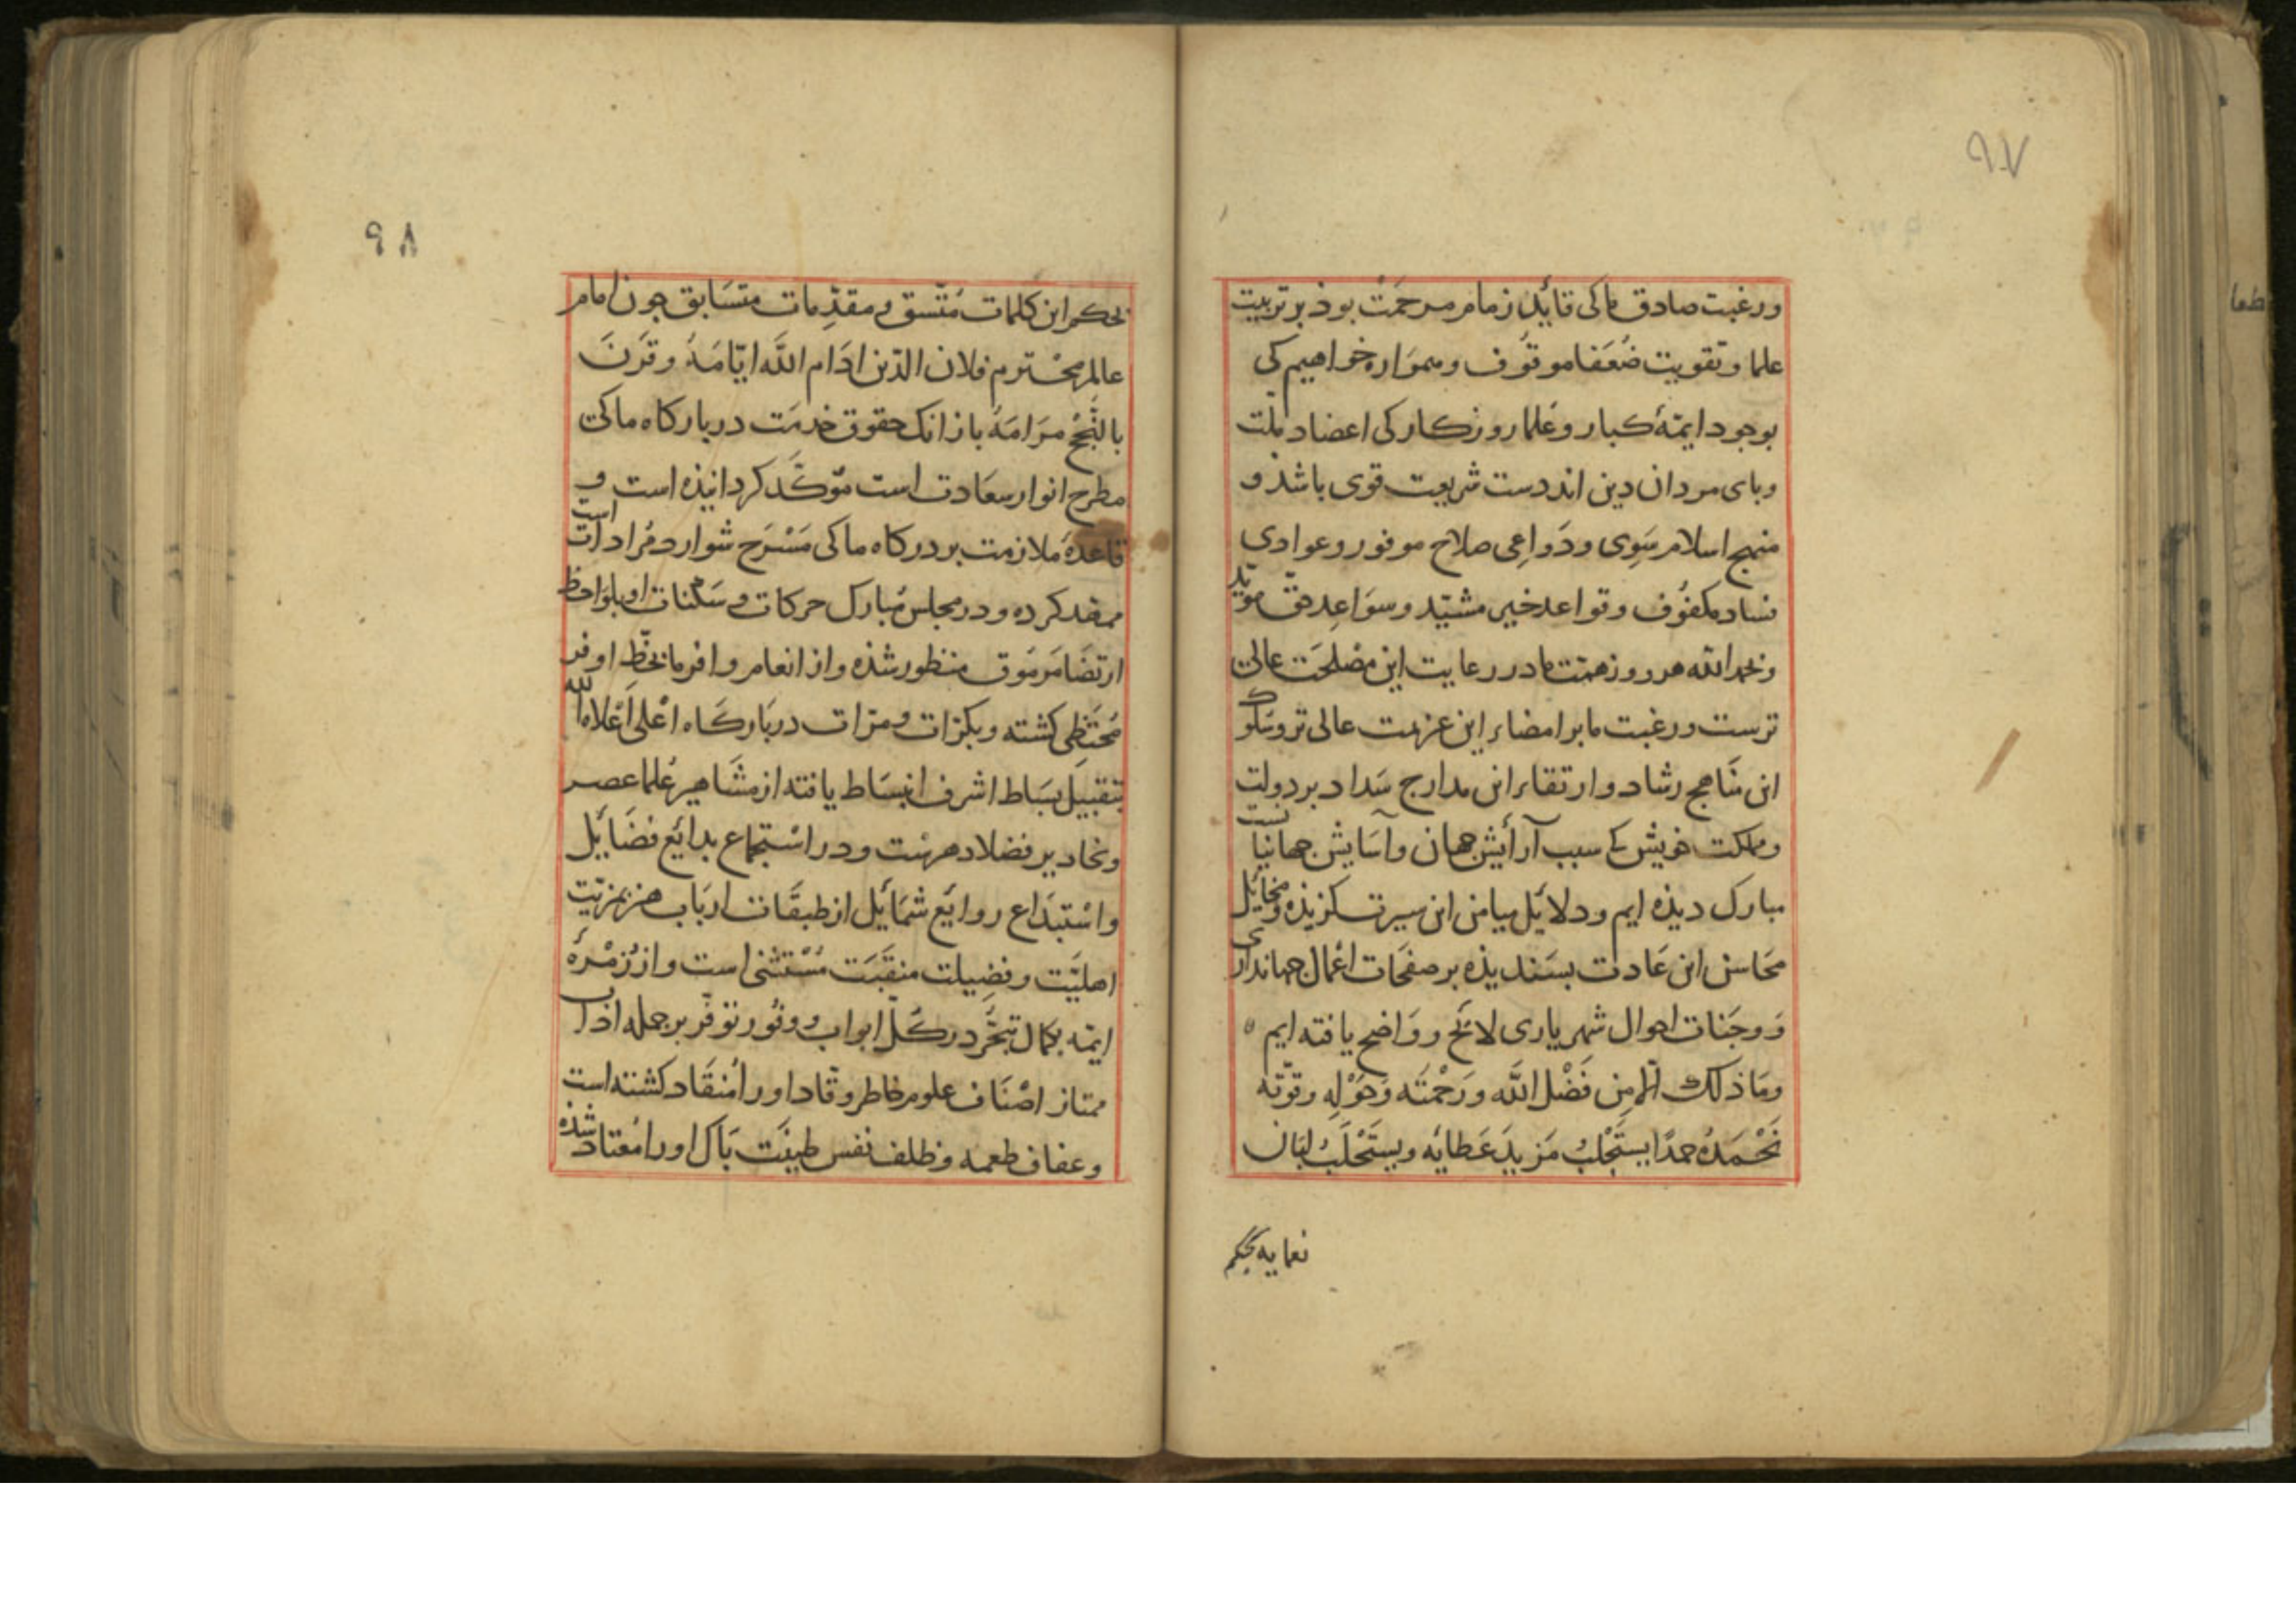 ۹۷
ورغبت صادق ما کی قائد زمام مرحمت بوذ بر تربیت
علما و تقویت ضُعَفا موقوُف وهموَاره خواهیم کی
بوجود ایمّهٔ کبار و عُلمار روزکار کی اعضاد ملّت
وبای مردان دین اند دست شریعت قوی باشذ و
منهج اسلام سَوِی ودَواعِی صلاح موفور وعوادی
فساد مکفوُف وقواعد خیر مشیّد وسوَاعِد حقّ مویّد
وبحمد الله هر روز همّت ما در رعایت این مصْلحَت عالی
ترست ورغبت ما بر امضاء این عزیمت عالی تر وسلوک
این مناَهج رشاد وارتقاء این مدارج سَداد بر دولت
ومملکت خویش کی سبب آرأیش جهان وآسَایش جهانیانست
مبارک دیذه ایم ودلائل میامن این سیرت کزیذه ومخائل
محَاسن این عَادت بسَندیذه بر صفحَات اعْمال جهانداری
وَ وجَنات احوال شهریاری لائح ووَاضح یافته ایم ه
ومَا ذلک الّا مِن فَضْل الله ورَحْمتَه وَحَوْلِه وقوّته
نَحْمَدُه حمدًا یستَجْلبُ مَزیدَ عَطایَه ویستَحْلَبُ لبَان
نعمایه بحکم
طعما
۹۸
بحکم این کلمات مُتّسق و مقدِّمات متسَابق جون امام
عالم محْترم فلان الدّین ادَام اللّه ایّامَهُ وقرَنَ
بالنُّجْحِ مَرَامَهُ باز انک حقوق خدمَت در بارکاه ما کی
مطرح انوار سعَادت است موّکَّد کردانیذه است و
قاعدهٔ ملازمت بر درکاه ما کی مَسْرَح شوارد مُرادات است
ممهّد کرده و در مجلس مُبارک حرکات و سَکنات او بلوَاحظ
ارتضَا مَرمُوق منظور شذه واز انعام وافر ما بحَظّ اوفر
مُحتَظِی کشته وبکرّات و مرّات در بَارکَاه اعْلی اَعْلاه الله
بتقبیل بسَاط اشرف انبسَاط یافته از مشَاهیر عُلما عصر
ونحاریر فضلا دهرست ودر استْجماع بدائع فضَایْل
واسْتبدَاع روایَع شمَایْل از طبقَات اربَاب هنر بمزیّت
اهلیَّت وفضِیلت منقبَت مُسْتثنی است واز زُمْرهٔ
ایمّه بکمال تبحُّر در کُلّ ابواب و وفُور توفّر بر جمله اداب
ممتاز اصْنَاف علوم خاطر وقّاد اورا مُنقَاد کشته است
وعفاف طعمه وظلف نفس طینَت بَاک اورا مُعتاد شذه